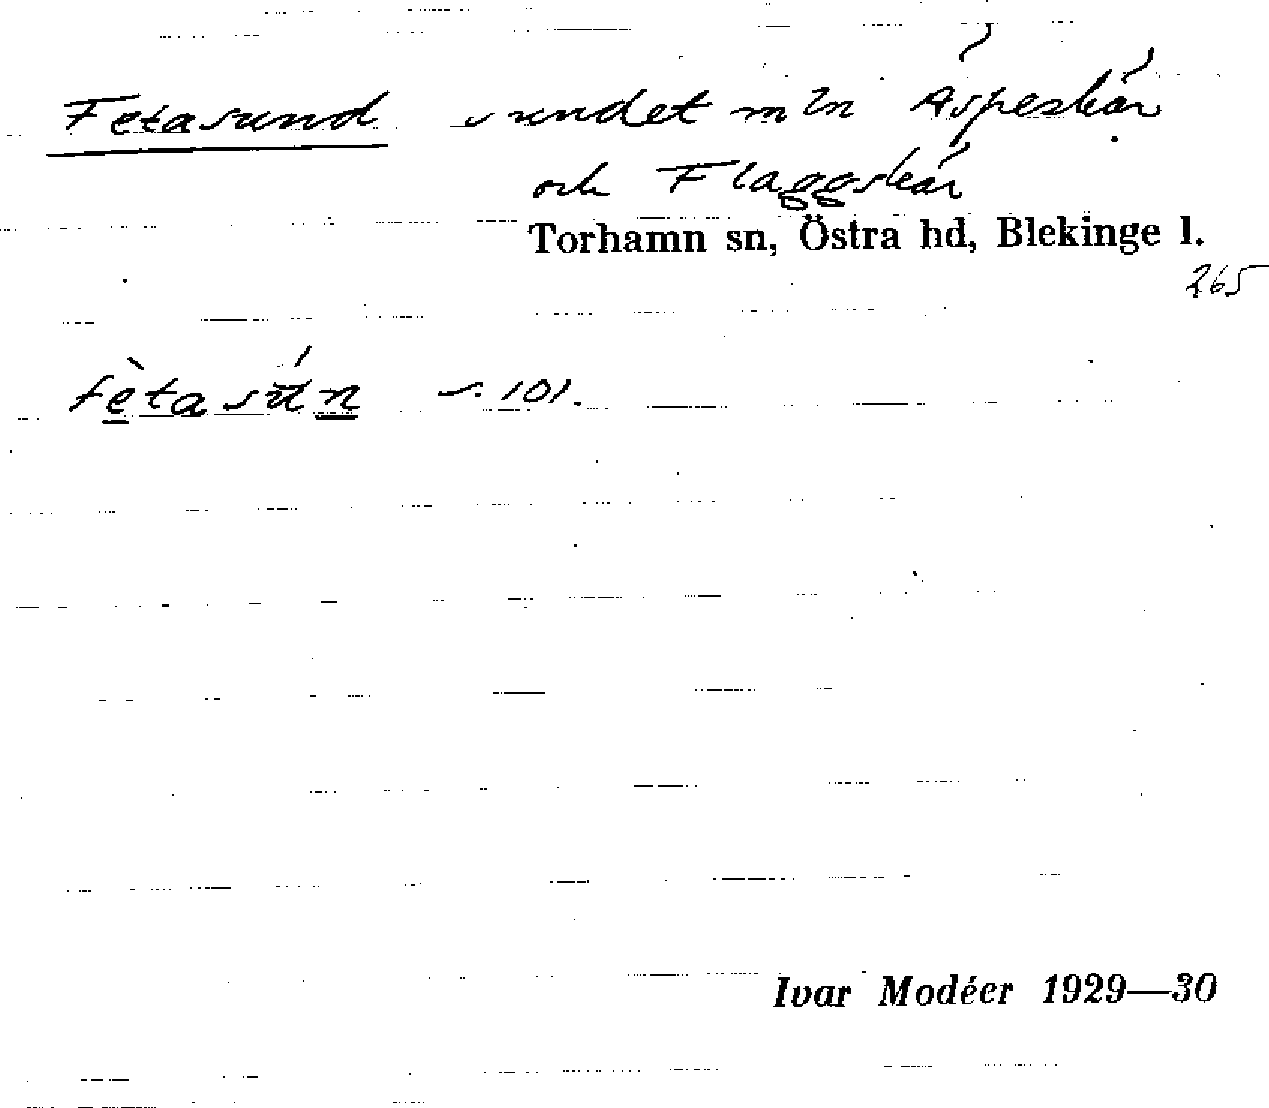 Fetasund sundet mln Äspeskär
och Flaggskär
Torhamn sn, Östra hd, Blekinge l.
265
fètasún s. 101.
Ivar Modéer 1929—30